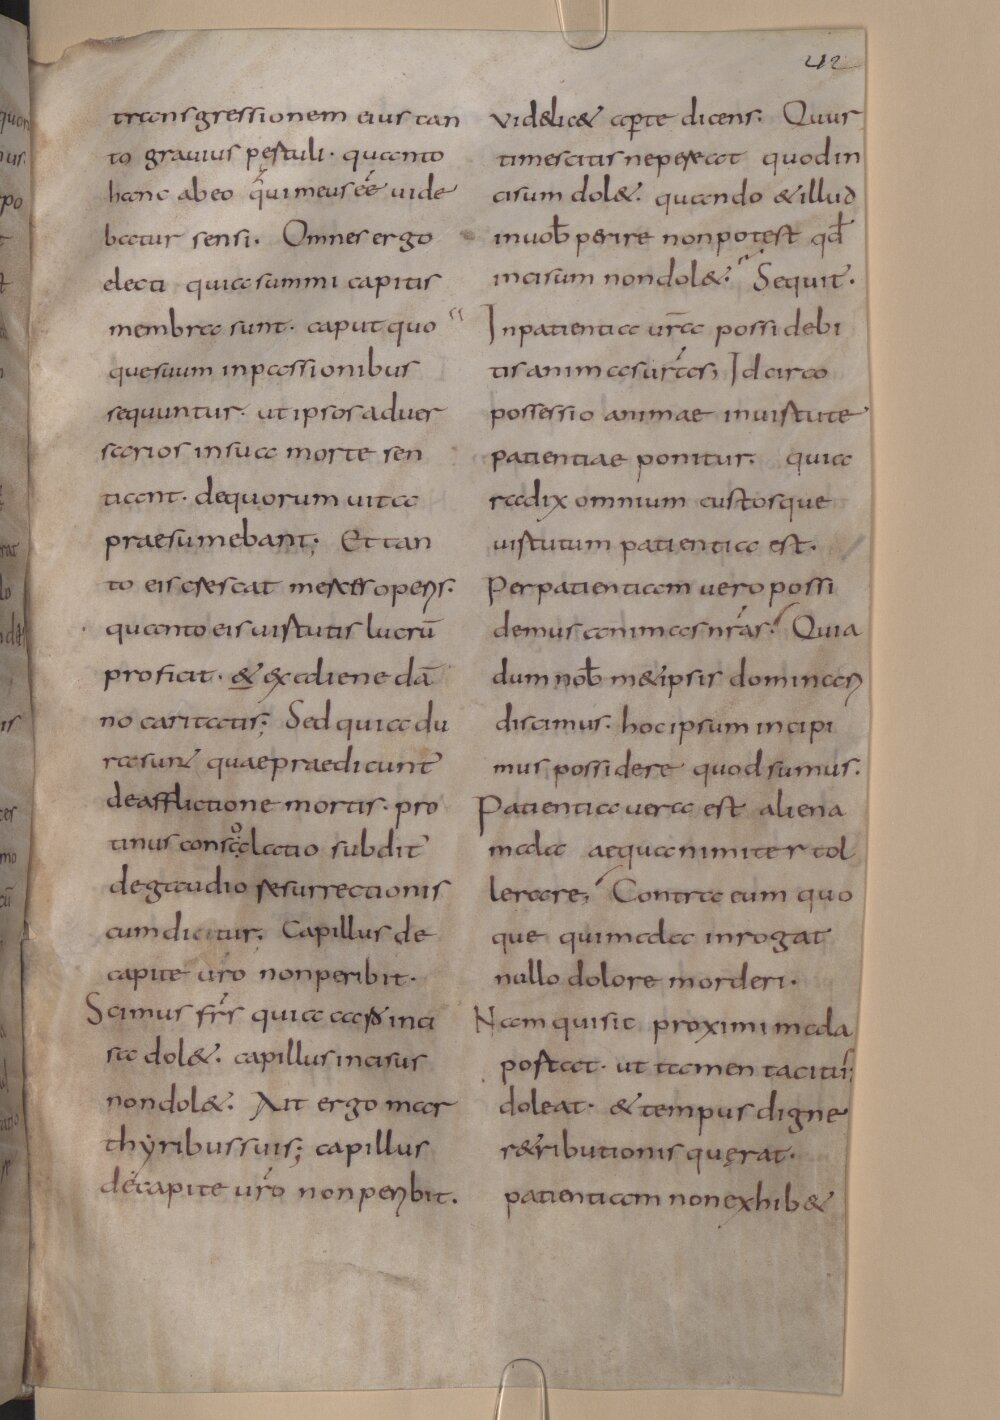 42
transgressionem eius tan
to gravius pertuli · quanto
hanc abeo q̄uimeus eẽ uide
batur sensi. Omnes ergo
electi quia summi capitis
membra sunt · caput quo
que suum inpassionibus
sequuntur · ut ipsos aduer
sarios insua morte sen
tiant · dequorum uita
praesumebant; Et tan
to eis crescat merces operis.
quanto eis uirtutis lucrū
proficit · & ex aliene dā
no caritatis; Sed quia du
ra sunt quaepraedicunt̄
deafflictione mortis · pro
tinus consolatio subdit̄
degaudio resurrectionis
cum dicitur; Capillus de
capite ur̄o nonperibit ·
Scimus fr̄s quia caro inci
sa dol&. capillus incisus
nondol&. Ait ergo mar
thyribus suis; capillus
decapite ur̄o nonperibit.
uid&lic& aperte dicens. Quur
timescitis nepereat quodin
cisum dol&. quando &illud
inuob̄ perire nonpotest qd̄
incisum nondol&. Sequit̄.
Inpatientia ur̄a possidebi
tis animas ur̄as; Idcirco
possessio animae inuirtute
patientiae ponitur. quia
radix omnium custosque
uirtutum patientia est.
Perpatientiam uero possi
demus animas nr̄as. Quia
dum nob̄ m&ipsis dominari
discimus. hocipsum incipi
mus possidere quodsumus.
Patientia uera est aliena
mala aequanimiter tol
lerare; Contra eum quo
que quimala inrogat
nullo dolore morderi.
Nam quisic proximi mala
portat · ut tamen tacitus
doleat · & tempus digne
r&ributionis quęrat ·
patientiam nonexhib&